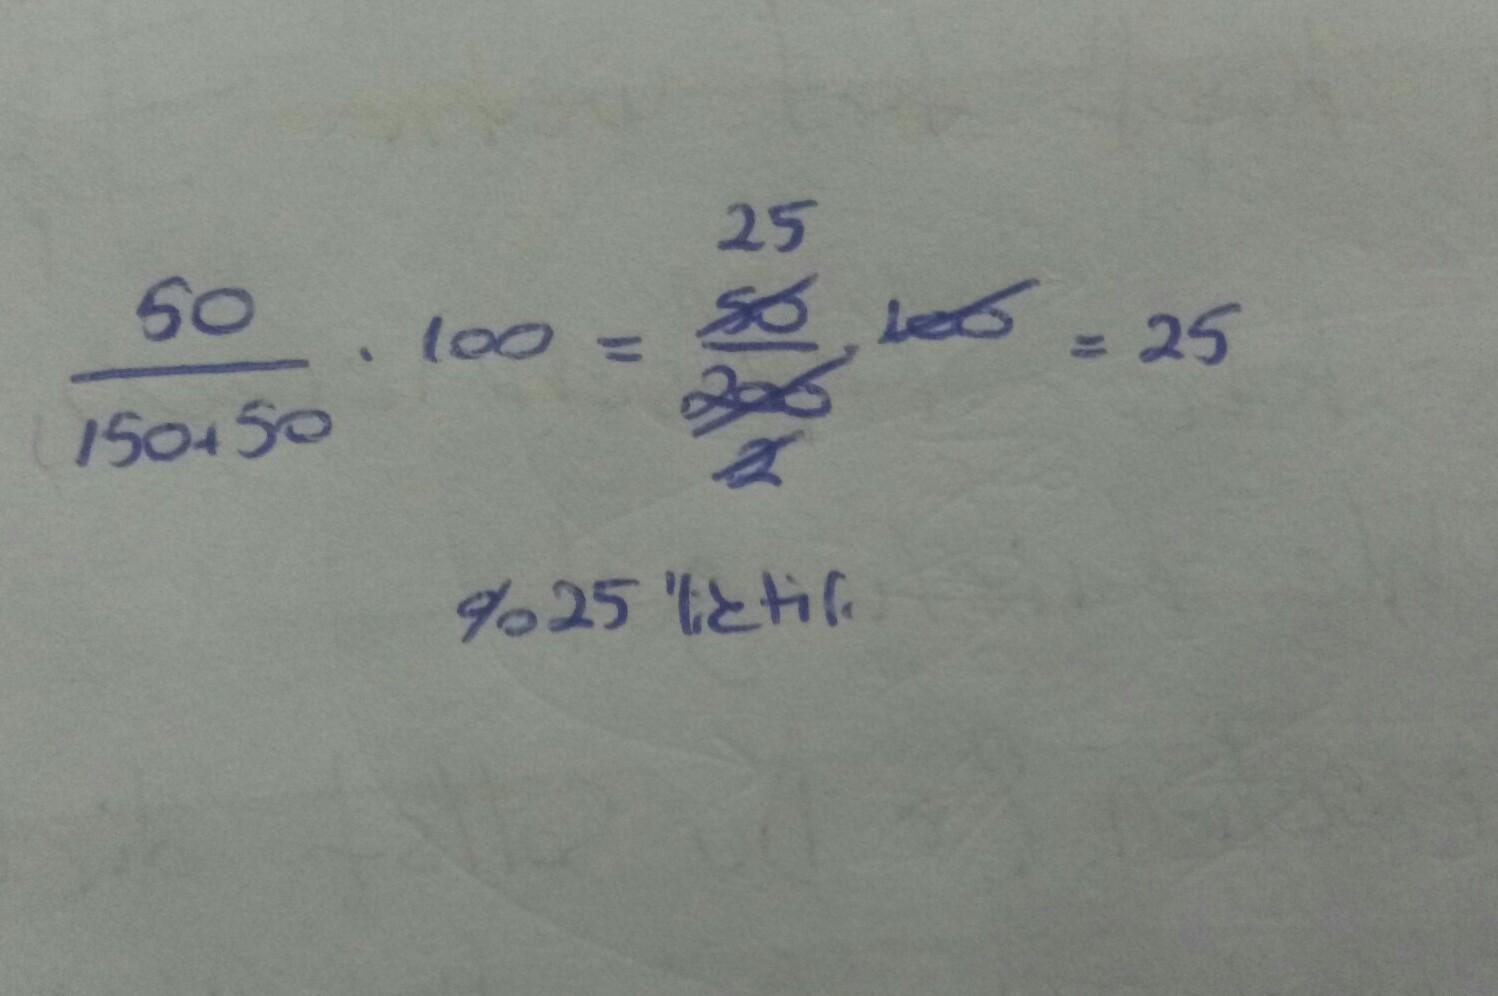 50/150+50 . 100 = 50/200 . 100 = 25
25
2
%25 'liktir.